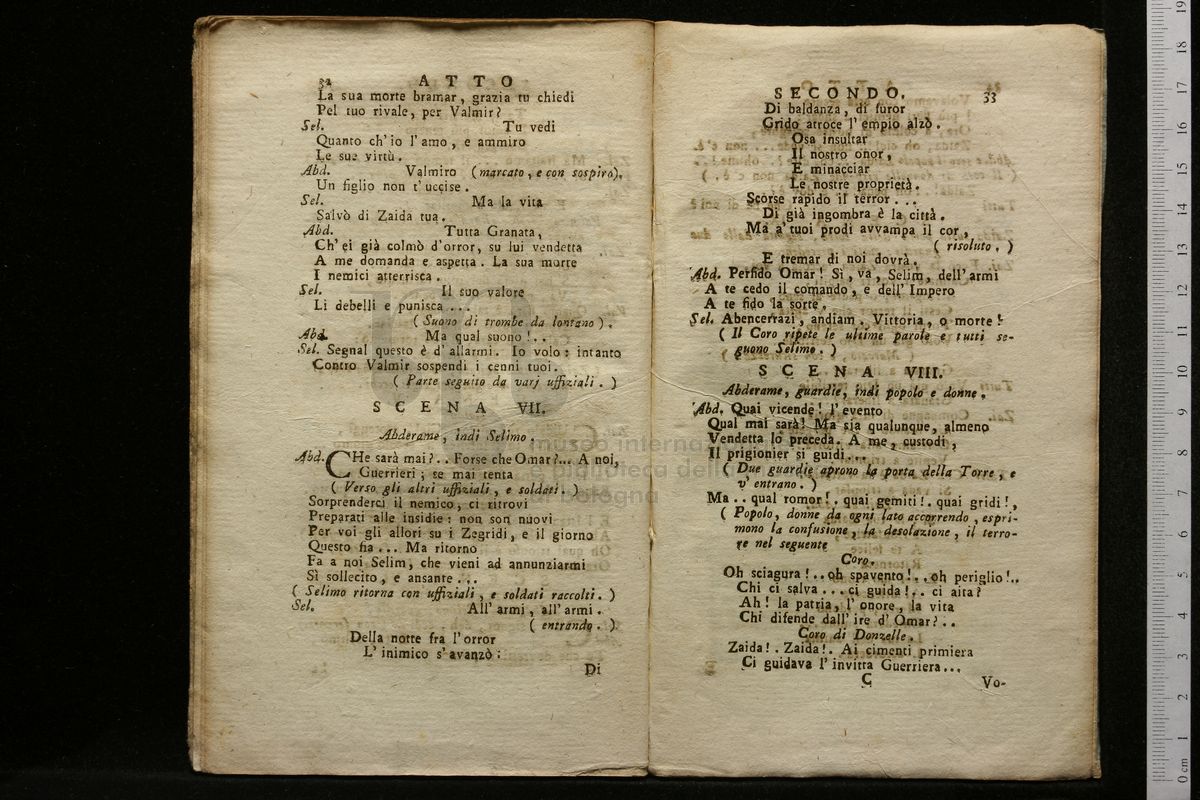 32 ATTO
La sua morte bramar, grazia tu chiedi
Pel tuo rivale, per Valmir?
Sel. Tu vedi
Quanto ch'io l'amo, e ammiro
Le sue virtù.
Abd. Valmiro (marcato, e con sospiro).
Un figlio non t'uccise.
Sel. Ma la vita
Salvò di Zaida tua.
Abd. Tutta Granata,
Ch'ei già colmò d'orror, su lui vendetta
A me domanda e aspetta. La sua morte
I nemici atterrisca.
Sel. Il suo valore
Li debelli e punisca...
(Suono di trombe da lontano).
Abd. Ma qual suono!..
Sel. Segnal questo è d'allarmi. Io volo: intanto
Contro Valmir sospendi i cenni tuoi.
(Parte seguito da varj uffiziali.)
SCENA VII.
Abderame, indi Selimo.
Abd. CHe sarà mai?.. Forse che Omar?... A noi,
Guerrieri; se mai tenta
(Verso gli altri uffiziali, e soldati.
Sorprenderci il nemico, ci ritrovi
Preparati alle insidie: non son nuovi
Per voi gli allori su i Zegridi, e il giorno
Questo fia... Ma ritorno
Fa a noi Selim, che vieni ad annunziarmi
Sì sollecito, e ansante...
(Selimo ritorna con uffiziali, e soldati raccolti.)
Sel. All'armi, all'armi.
(entrando.)
Della notte fra l'orror
L'inimico s'avanzò:
Di
SECONDO. 33
Di baldanza, di furor
Grido atroce l'empio alzò.
Osa insultar
Il nostro onor,
E minacciar
Le nostre proprietà.
Scorse rapido il terror...
Di già ingombra è la città.
Ma a'tuoi prodi avvampa il cor,
(risoluto.)
E tremar di noi dovrà.
Abd. Perfido Omar! Sì, va, Selim, dell'armi
A te cedo il comando, e dell'Impero
A te fido la sorte.
Sel. Abencerrazi, andiam. Vittoria, o morte!
(Il Coro ripete le ultime parole e tutti se-
guono Selimo.)
SCENA VIII.
Abderame, guardie, indi popolo e donne.
Abd. Quai vicende! l'evento
Qual mai sarà! Ma sia qualunque, almeno
Vendetta lo preceda. A me, custodi,
Il prigionier si guidi...
(Due guardie aprono la porta della Torre, e
v'entrano.)
Ma.. qual romor!. quai gemiti!. quai gridi!,
(Popolo, donne da ogni lato accorrendo, espri-
mono la confusione, la desolazione, il terro-
re nel seguente
Coro.
Oh sciagura!..oh spavento!..oh periglio!..
Chi ci salva...ci guida!.. ci aita?
Ah! la patria, l'onore, la vita
Chi difende dall'ire d'Omar?..
Coro di Donzelle.
Zaida!. Zaida!. Ai cimenti primiera
Ci guidava l'invitta Guerriera...
C Vo-
museo interna
biblioteca del
bologna